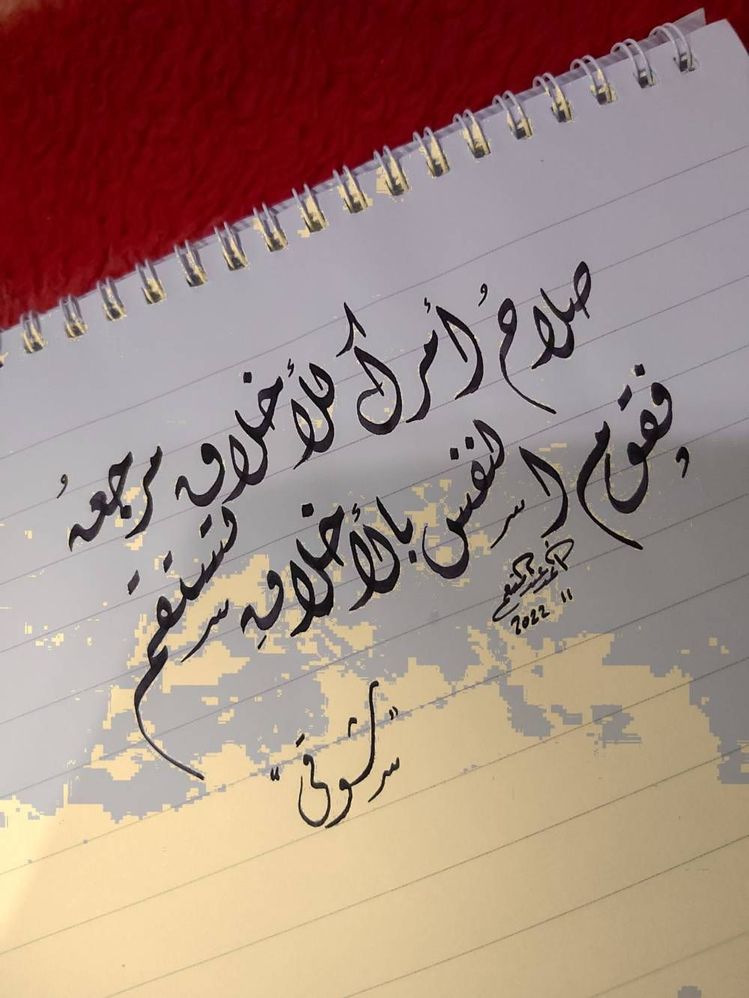 صلاحُ أمرك للأخلاق مرجعهُ
فقوِّم النفس بالأخلاقِ تستقم
2022 11
"شوقي"